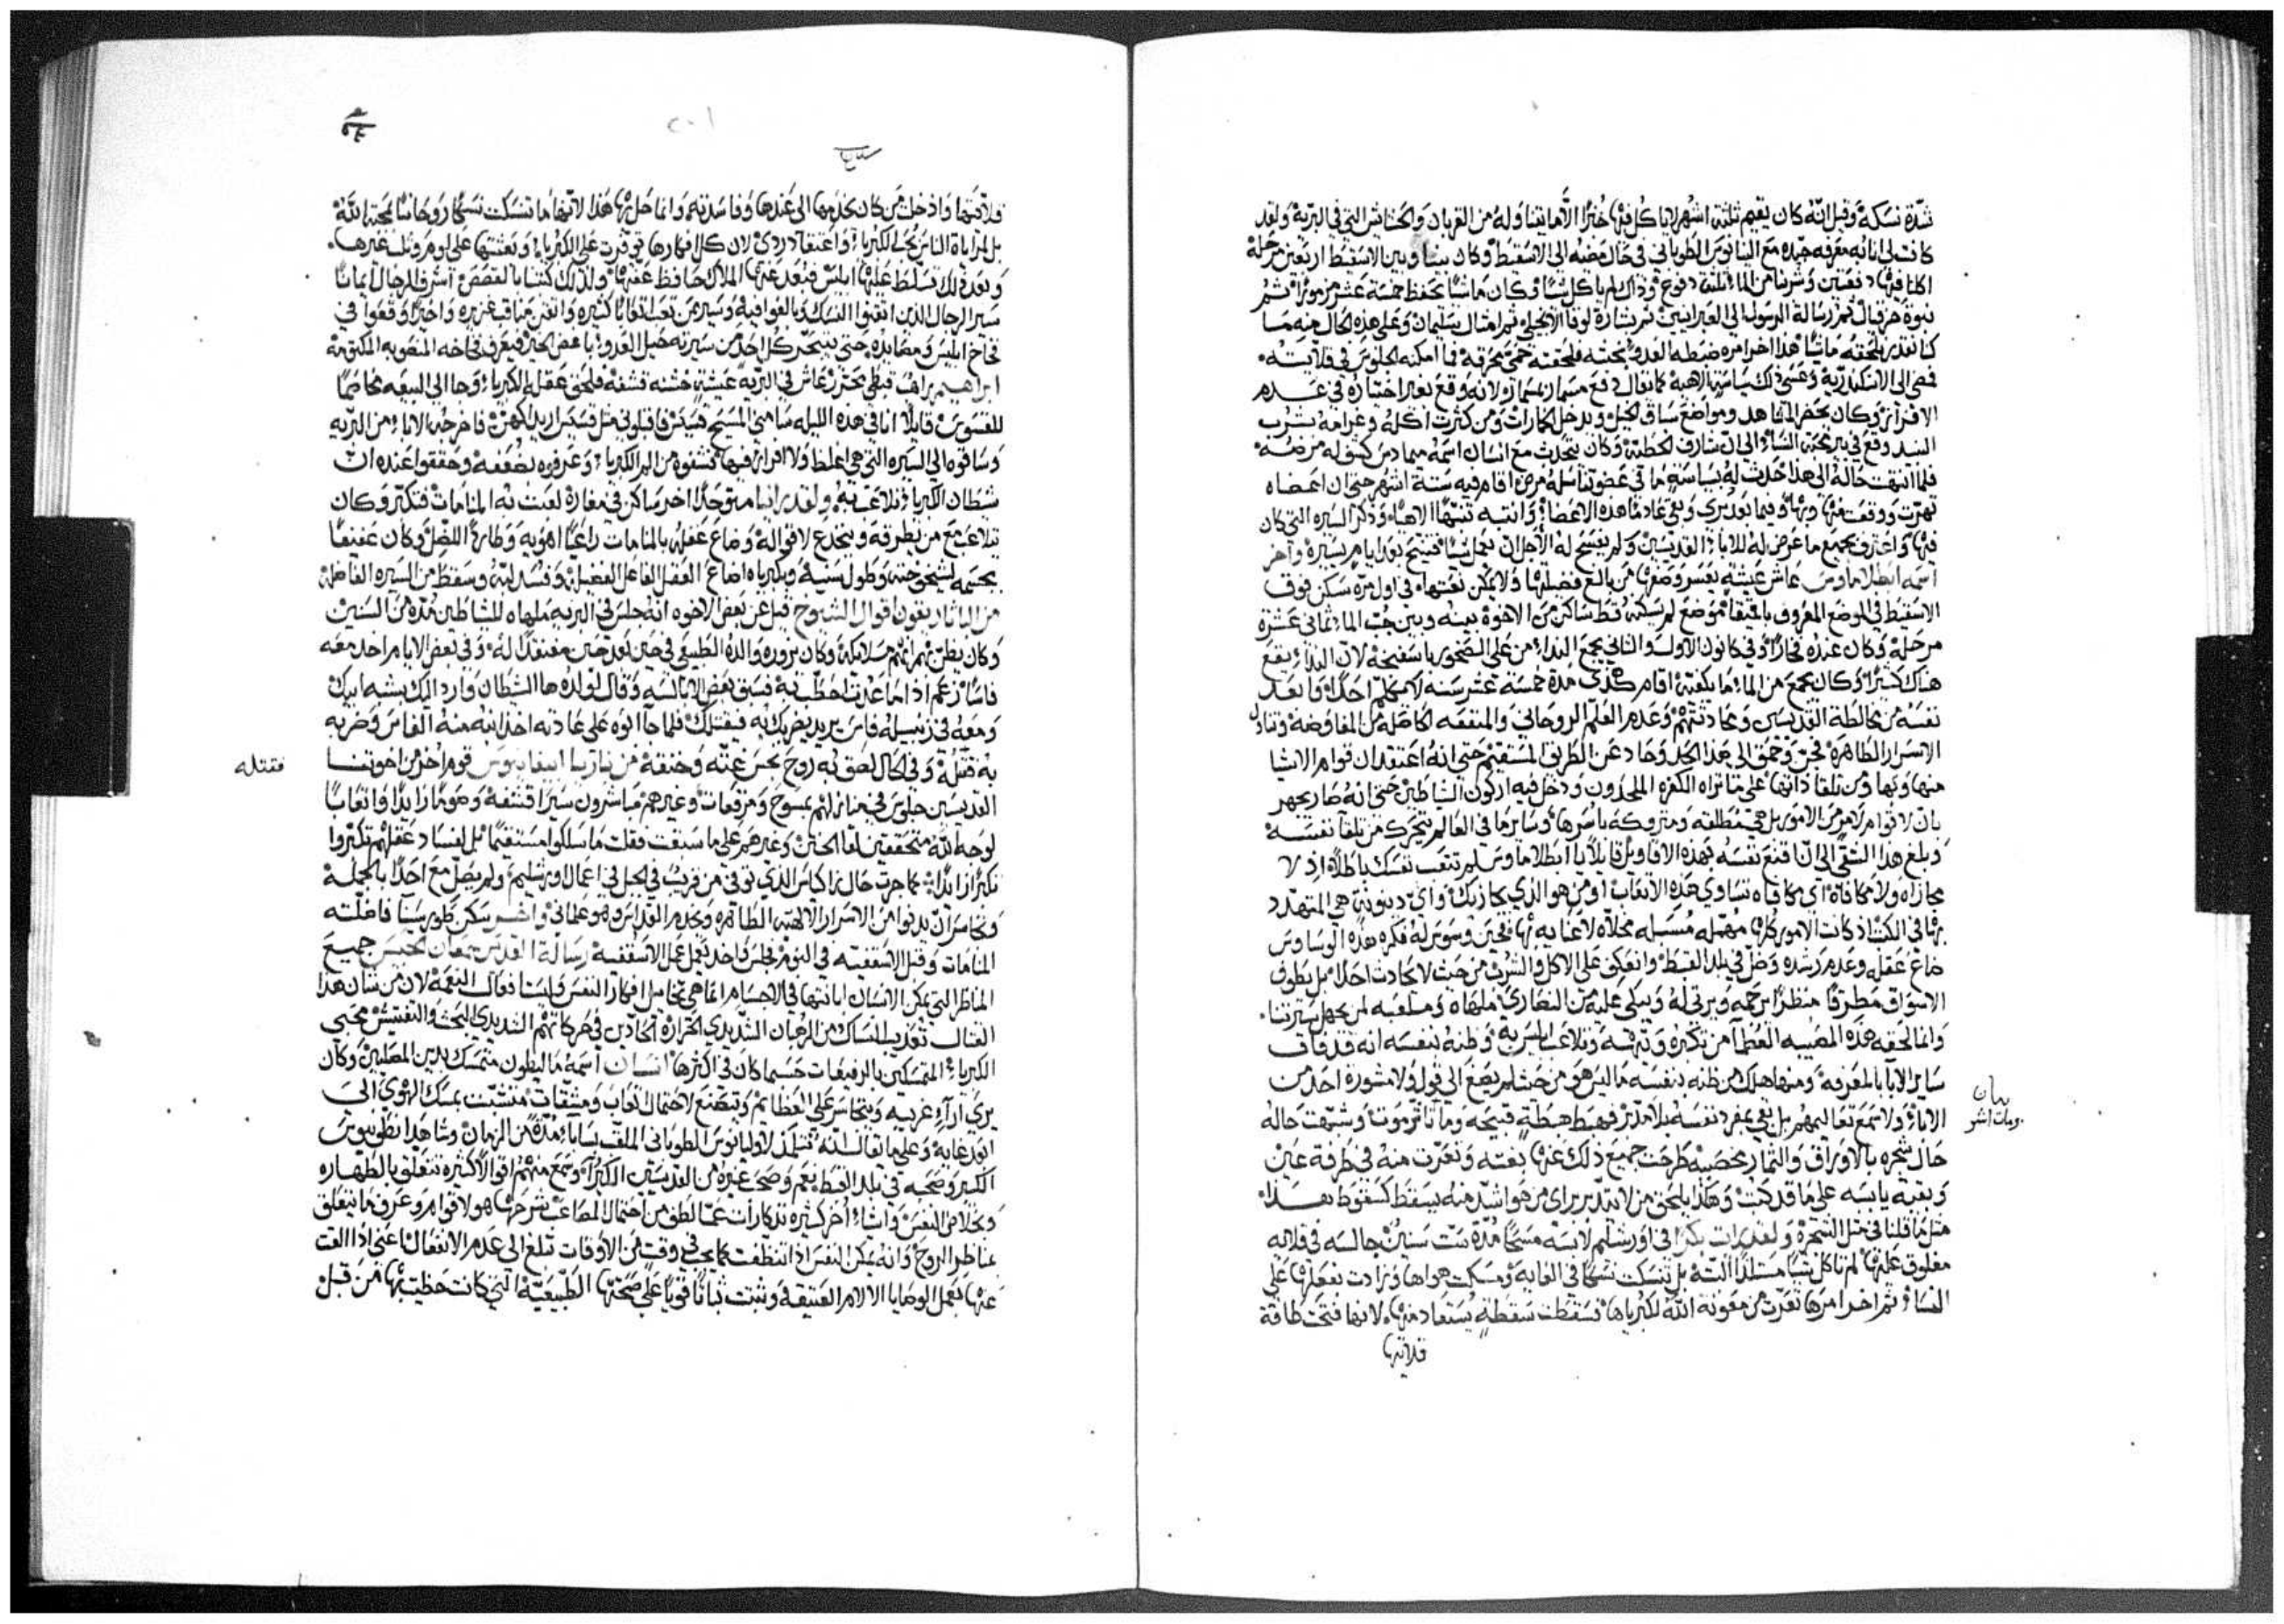 شدّة نسكه وقيل انّه كان يقيم ثلثة اشهر لا ياكل فيها خبزًا الّا ما يتناوله من القربان والحشايش التي في البريّة ولقد
كانت لي انا به معرفه جيده مع البانوس الطوباني في حال مضيه الى الاسقيط وكان بيننا وبين الاسقيط اربعين مرحلة
اكلنا فيها دفعتين وشربنا من الماء ثلثة دفوع وذاك لم ياكل شيًا وكان ماشيًا يحفظ خمسة عشر مزمورًا ثم
نبوة حزقيال ثم رسالة الرسول الى العبرانيين ثم بشارة لوقا الانجيلي ثم امثال سليمان وعلى هذه الحال منه ما
كنا نقدر نلحقه ماشيًا هذا اخر امره ضغطه العدو بمحنته فلحقته حمى محرقة فما امكنه الجلوس في قلايته
فمضى الى الاسكندرية وعسى ذلك سياسة الاهية كما يقال دفع مسمار بمسمار لانه وقع بغير اختياره في عدم
الافراز وكان يحضر المشاهد ومواضع سباق الخيل ويدخل الخمارات ومن كثرت اكله وغرامه بشرب
النبيد وقع في بير محبة النساء الى ان شارف الخطية وكان يتحدث مع انسان اسمه
فلما انتهت حالة الى هذا حدث له بسياسة ما في عضو تناسله مرض اقام فيه ستة اشهر حتى ان اعضاه
تهرّت ووقعت وفيما بعد بري وبقي عادمًا هذه الاعضاء وانتبه تنبهًا الاهيًا وذكر السيره التي كان
فيها واعترف بجميع ما عرض له للاباء القديسين ولم يفسح له الاجل ان يعمل شيًا فتنيح بعد ايام يسيرة واخر
اسمه ابطلاماوس عاش عيشة يعسر وصفها من بالغ فضيلتها ولا يمكن نعتها في اول مرّة سكن فوق
الاسقيط في الموضع المعروف موضع لم يسكنه قط ساكن من الاخوة بينه وبين جب الماء ثماني عشرة
مرحلة وكان عنده فخارًا وفي كانون الاول والثاني يجمع النداء من على الصخور باسفنجة لان النداء يقع
هناك كثيرًا وكان يجمع من الماء ما يكفيه اقام كذى مدة خمسة عشر سنه لا يكلّم احدًا وابعد
نفسه من مخالطة القديسين ومحادثتهم وعدم العلم الروحاني والمنفعه الحاصله من المفاوضة وتناول
الاسرار الطاهرة فجن وحمق الى هذا الحد وحاد عن الطريق المستقيم حتى انه اعتقد ان قوام الاشيا
منها وبها ومن تلقا ذاتها على ما تراه الكفره الملحدون ودخل فيه اركون الشياطين حتى انه صار يجهر
بان لا قوام لامر من الامور بل هي مطلقه ومتروكة باسرها وساير ما في العالم يتحرك من تلقا نفسه
وبلغ هذا الشقي الى ان اقنع نفسه بهذه الاقاويل قايلًا يا ابطلاماوس لم تتعب نفسك باطلًا اذ لا
مجازاه ولا مكافاه اي مكافاه تساوي هذه الاتعاب او من هو الذي يجازيك واي دينونة هي المتهدد
بها في الكتب اذ كانت الامور كلها مهمله مسبله مخلاه لا عنايه بها فحين وسوس له فكره بهذه الوساوس
ضاع عقله وعدم رشده وضل في بلد القبط وانعكف على الاكل والشرب من حيث لا يحادث احدًا بل يطوف
الاسواق مطرقًا منظرًا يرحمه ويرثى له ويبكى عليه من النصارى ملهاة وملعبه لمن يجهل سيرتنا
وانما لحقه هذه المصيبه العظما من تكبره وتيهه وتلاعب البربه وظنه بنفسه انه قد فاق
ساير الابا بالمعرفه ومنها هلك من ظنه بنفسه ما ليس هي من حيث لم يصغ الى قول ولا مشورة احد من
الاباء ولا سمع تعاليمهم بل بقي بمفرد نفسه بلا مدبر فهبط هبطة قبيحه ومات اشر موت وشبهت حاله
حال شجره بالاوراق والثمار مخصبه طرحت جميع ذلك عنها بغته وتعرّت منه في طرفة عين
وبقيه يابسه على ما قد كنت وهكذا يلحق من لا يتدبر براي من هو اشد منه يسقط كسقوط هذا
مثل ما قلنا في مثل الشجرة ولقد رات بكرًا في اورشليم لابسه مسحًا مدّة ست سنين جالسه في قلايه
مغلوق عليها لم تاكل شيًا مستلذًا البتة بل تنسكت نسكًا في الغايه ومسكت هواها وزادت بفعلها على
النساء ثم اخر امرها تعرّت من معونة الله لكبرياها فسقطت سقطة يستعاد منها لانها فتحت طاقة
قلايتها
بيان
ومات اشر
قلايتها وادخلت من كان يخدمها الى عندها وفاسدته وانما حل بها هذا لانها ما تنسكت نسكًا روحانيًا لمحبة الله
بل لمراياة الناس بحب الكبرياء واعتقاد ردي لان كل افكارها قويت على الكبرياء وبعثتها على لوم وثلب غيرها
وبعد ذلك تسلّط عليها ابليس فبعد عنها الملاك حافظ عفتها ولذلك كتبنا بالقصص اشرف الرجال ايمانًا
سير الرجال الذين اتقنوا النسك بالعوافيه وسير من تعب اتعابًا كثيره واتقن مناقب غزيره واخيرًا وقعوا في
فخاخ ابليس ومصايده حتى يتبحّر كل احد من سيرته حيل العدو باغض الخير فيعرف فخاخه المنصوبه المكتومة
ابراهيم براف قبطي بحترز عاش في البريه عيشة خشنه قشفه فلحق عقله الكبرياء وجا الى البيعه مخاصمًا
للقسوس قايلًا انا في هذه الليله سامني المسيح قسّيس فاقبلوني مثل قسيس اريد اكهن فاخرجه الاباء من البريه
وساقوه الى السيره التي هي اغلظ ولا افراز فيها فشفوه من الم الكبرياء وعرفوه بضعفه وحققوا عنده ان
شيطان الكبرياء تلاعب به ولقد راينا متوحدًا اخر ساكن في مغارة لعبت به المنامات فتكبّر وكان
يتلاعب مع من يطرقه وينخدع لاقواله وضاع عقله بالمنامات راعيًا اهويه وطارد الظل وكان عفيفًا
بجسمه لشيخوخته وطول سنيه وبكبرياه اضاع العقل الفاعل الفضيلة وفسد لبه وسقط من السيره الفاضلة
من الماثاريقون اقوال الشيوخ قيل عن بعض الاخوه انه جلس في البريه ملهاه للشياطين مدّه من السنين
وكان يظن بهم انهم ملايكه وكان يزوره والده الطبيعي في حين بعد حين مفتقدًا له وفي بعض الايام اخذ معه
فاسًا زعم اذا ما عدت احطّب به فسبق بعض الابالسه وقال لولده ها الشيطان وارد اليك بشبه ابيك
ومعه في زنبيله فاس يريد يضربك به فيقتلك فلما جا ابوه على عادته اخذ ابنه منه الفاس وضربه
به فقتله وفي الحال لصق به روح نجس غيّه وخنقه من نياربا ابيفانيوس قوم اخر من اخوتنا
القديسين جلوس في منازلهم بمسوح ومرقعات وغيرهم مباشرون سيرًا قشفه وصومًا زايدًا واتعابًا
لوجه الله متحققين لقا الختن وغيرهم على ما سبقت فقلت ما سلكوا مستقيمًا بل لفساد عقلهم تكبّروا
تكبرًا زايدًا كما جرت حال زاكياس الذي توفى من قريب في الجبل في اعمال اورشليم ولم يصلّ مع احدًا بالجملة
وتجاسر ان يدنوا من الاسرار الالهية الطاهره ويخدم القداس وهو علماني واخر سكن طور سينا فاضلته
المنامات وقبل الاسقفيه في النوم فجلس واخذ يعمل عمل الاسقفية رسالة القديس سمعان الحبيس جميع
المناظر التي يمكن الانسان ابانتها في الاجسام انما هي تخاييل افكار النفس وليست فعال النعمة لان من شان هذا
القتال تعذيب النساك من الرهبان الشديدي الحرارة الحادّين في حركاتهم الشديدي البحث والتفتيش محبي
الكبرياء المتمسكين بالرفيعات حسبما كان في اكثرها انسان اسمه مالبطون متمسك بدين المصلين وكان
يرى آراء غريبه ويتجاسر على العظايم ويتصنع لاحتمال اتعاب ومشقات متشبت بمسك الهوى الى
ابعد غايه وعلى ما يقال انه تتلمذ لاوليانوس الطوباني الملقب سابا مدّة من الزمان وشاهد انطونيوس
الكبير وصحبه في بلد القبط نعم وصحب غيره من القديسين الكبراء وسمع منهم اقوالًا كثيره تتعلق بالطهاره
وبخلاص النفس واشياء اخر كثيره تذكارات عمّا لطق من احتمال المصاعب شرحها هولا قوام وعرف ما يتعلق
بمناظر الروح وانه يمكن النفس اذا تنظفت كما يجب في وقت من الاوقات تبلغ الى عدم الانفعال اعني اذا القت
عنها بعمل الوصايا الالام العتيقة وثبتت ثباتًا قويًا على صحتها الطبيعيّة التي كانت حظيت بها من قبل
فقتله